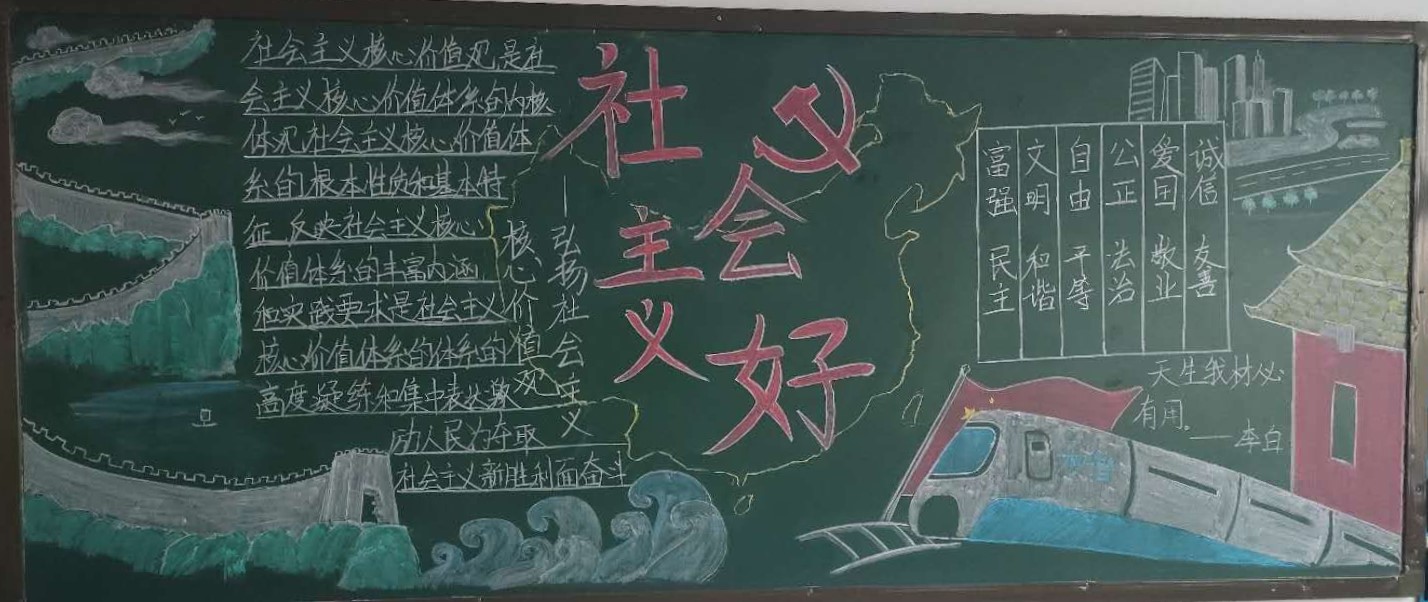 社会主义核心价值观是社
会主义核心价值体系的内核
体现社会主义核心价值体
系的根本性质和基本特
征 反映社会主义核心
价值体系的丰富内涵
和实践要求是社会主义
核心价值体系的体系的
高度凝练和集中表达激
励人民为夺取
社会主义新胜利而奋斗
——弘扬社会主义
核心价值观
社会主义好
富强 民主
文明 和谐
自由 平等
公正 法治
爱国 敬业
诚信 友善
天生我材必
有用。
——李白